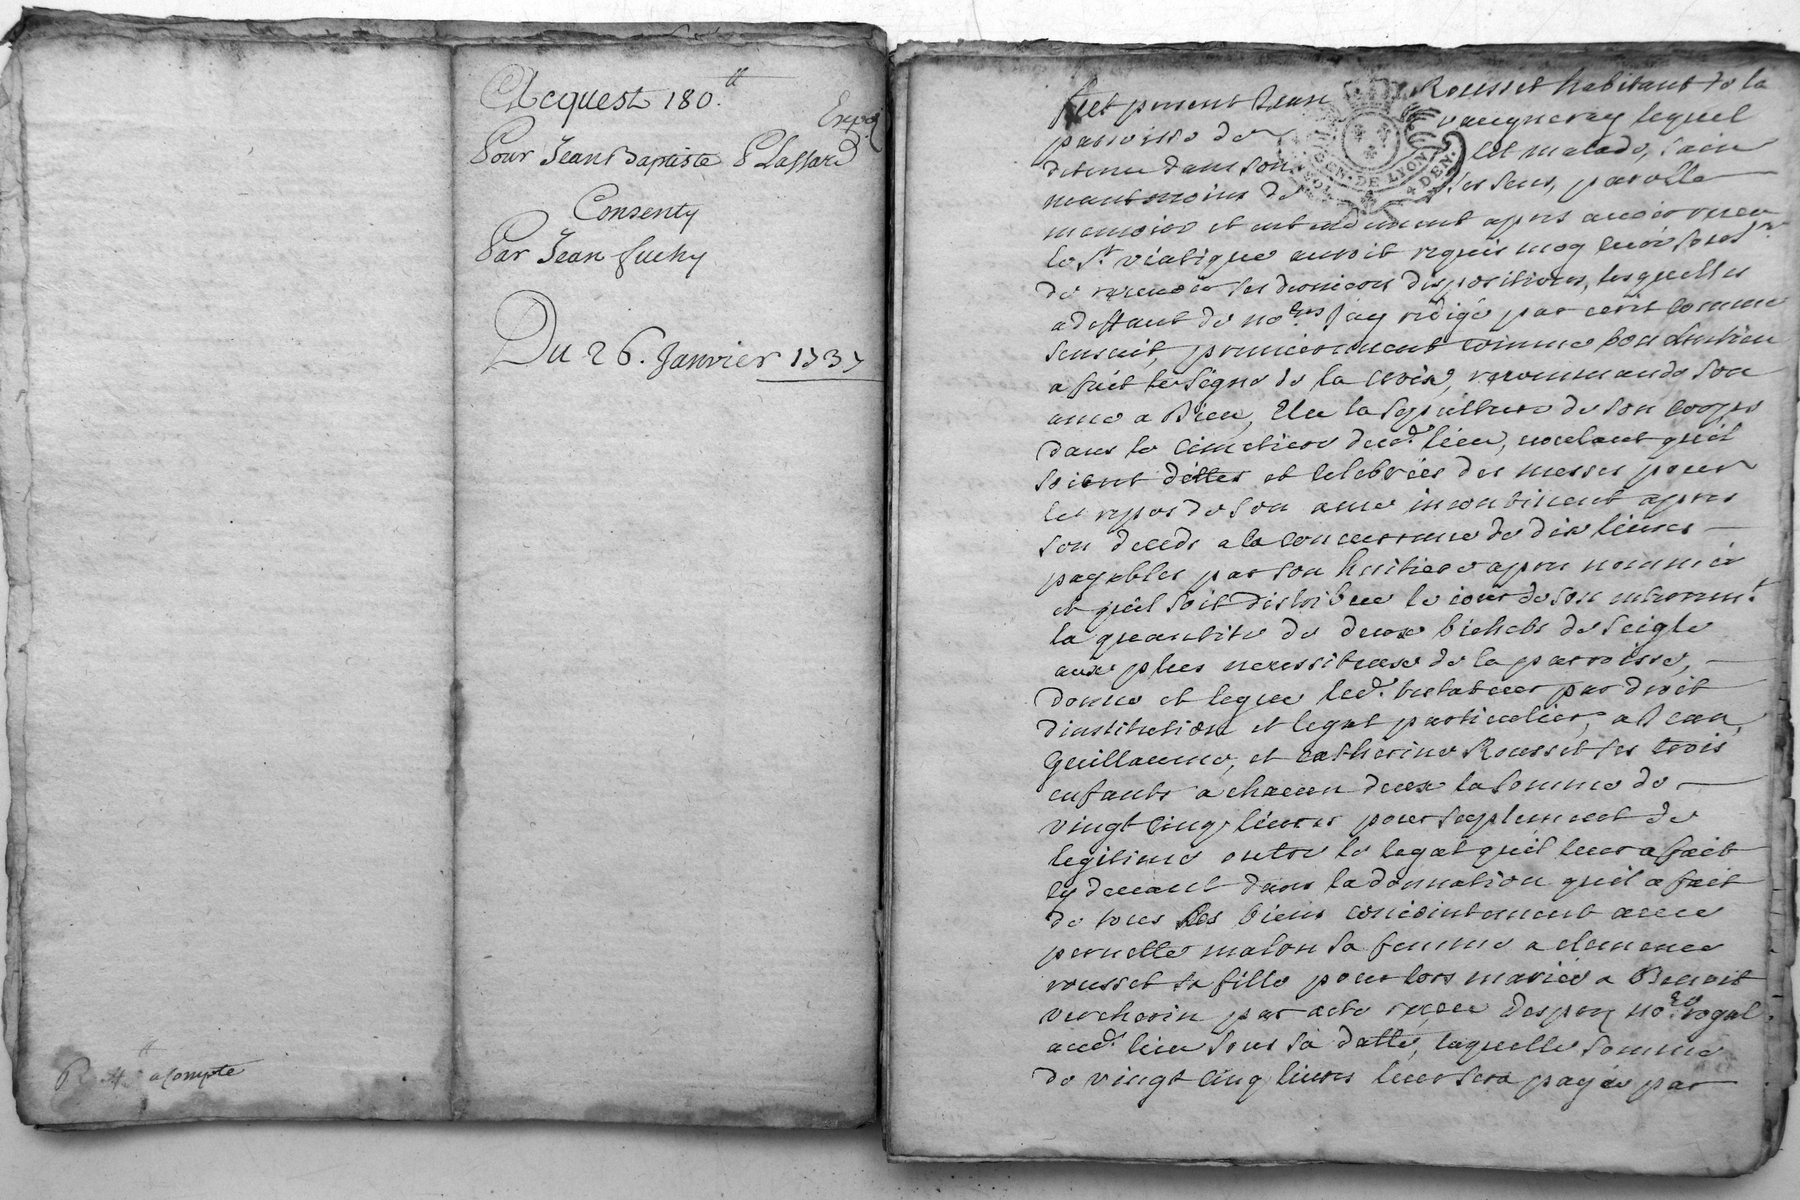 Acquest 180.tt
Expé
Pour Jean Baptiste Plassard
Consenty
Par Jean fuchy
Du 26. Janvier 1737
R 4tt acompte
fut present Jean Rousset habitant de la
parroisse de vaugneray lequel
detenu dans son lit malade, sain
neantmoins de ses sens, parolle
memoire et entendement apres avoir receu
le St. viatique auroit requis moy curé soussné
de recevoir ses dernieres dispositions, lesquelles
a deffaut de nores j'ay redigé par ecrit comme
sensuit, premierement comme bon chretien
a fait le signe de la croix, recommandé son
ame a Dieu, Elu la sepulture de son corps
dans le cimetiere dud. lieu, voulant quil
soient dittes et celebrées des messes pour
le repos de son ame incontinent apres
son deceds a la concurrance de dix livres
payables par son heritiere apres nommée
et quil soit distribué le jour de son enterremt.
la quantité de deux bichets de seigle
aux plus necessiteux de la parroisse,
donne et legue led. testateur par droit
dinstitution et legat particulier, a Jean,
Guillaume, et catherine Rousset ses trois
enfants a chacun deux la somme de
vingt cinq livres pour suplement de
legitime outre le legat quil leur a fait
cy devant dans la donnation quil a fait
de tous ses biens conjointement avec
pernette malon sa femme a clemence
rousset sa fille pour lors mariée a Benoit
vercherin par acte receu Despery nore. royal
aud. lieu sous sa datte, laquelle somme
de vingt cinq livres leur sera payée par